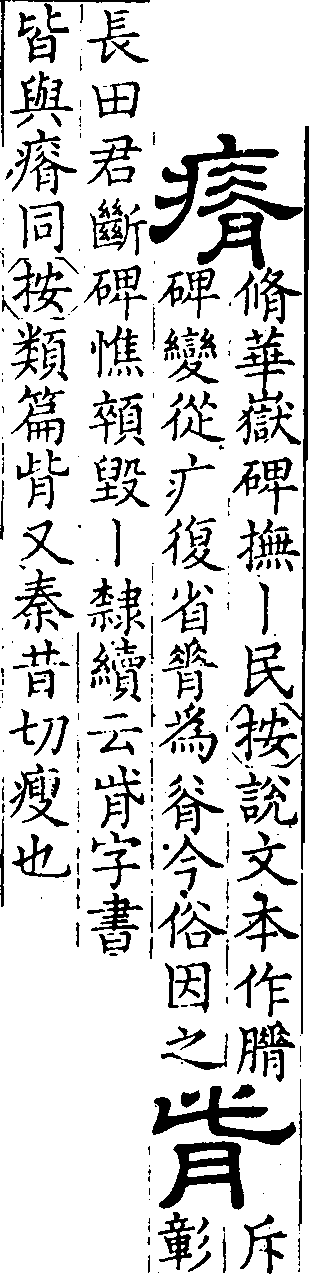 瘠
脩華嶽碑撫丨民按說文本作膌
碑變從疒復省脊為今俗因之
胔
斥
彰
長田君斷碑憔顇毀丨隸續云胔字書
皆與瘠同按類篇胔又秦昔切瘦也